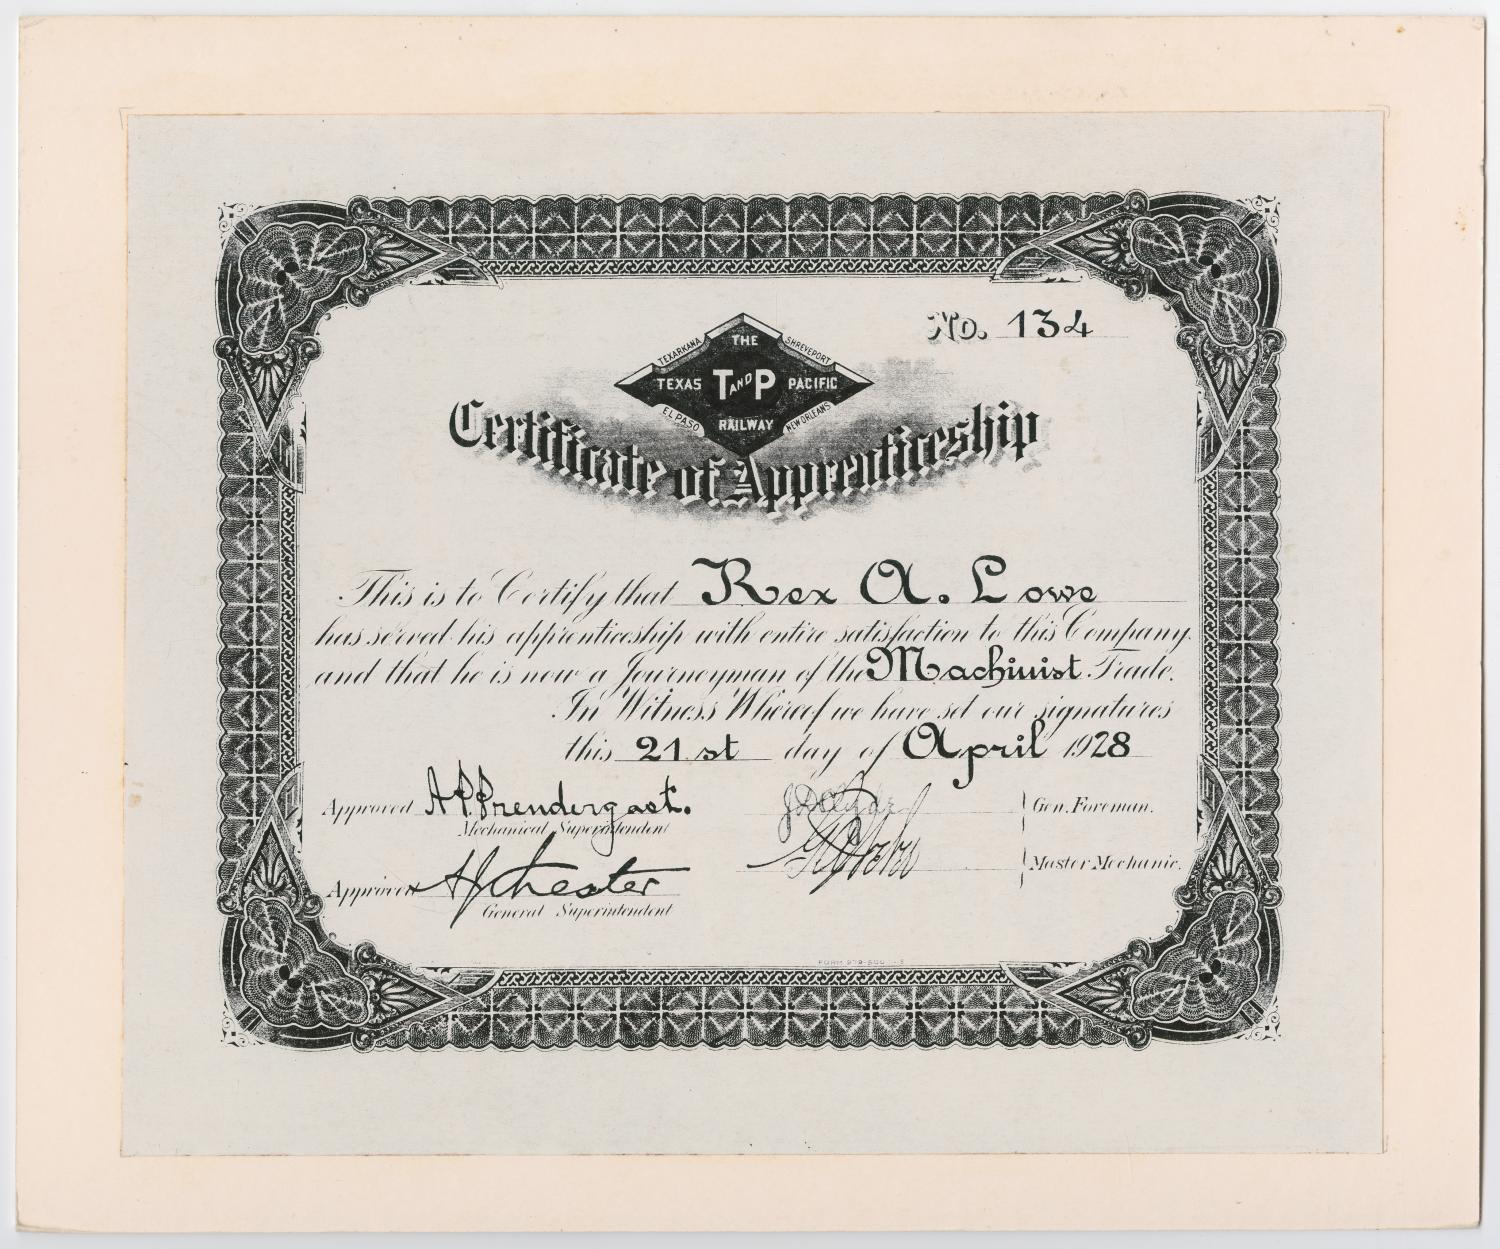 No. 134
TEXARKANA THE SHREVEPORT
TEXAS T AND P PACIFIC
EL PASO RAILWAY NEW ORLEANS
Certificate of Apprenticeship
This is to Certify that Rex A. Lowe
has served his apprenticeship with entire satisfaction to this Company.
and that he is now a Journeyman of the Machinist Trade.
In Witness Whereof we have set our signatures
this 21st day of April 1928
Approved A P Prendergast. Gen. Foreman.
Mechanical Superintendent
Master Mechanic.
Approved Chester
General Superintendent
FORM 979-500